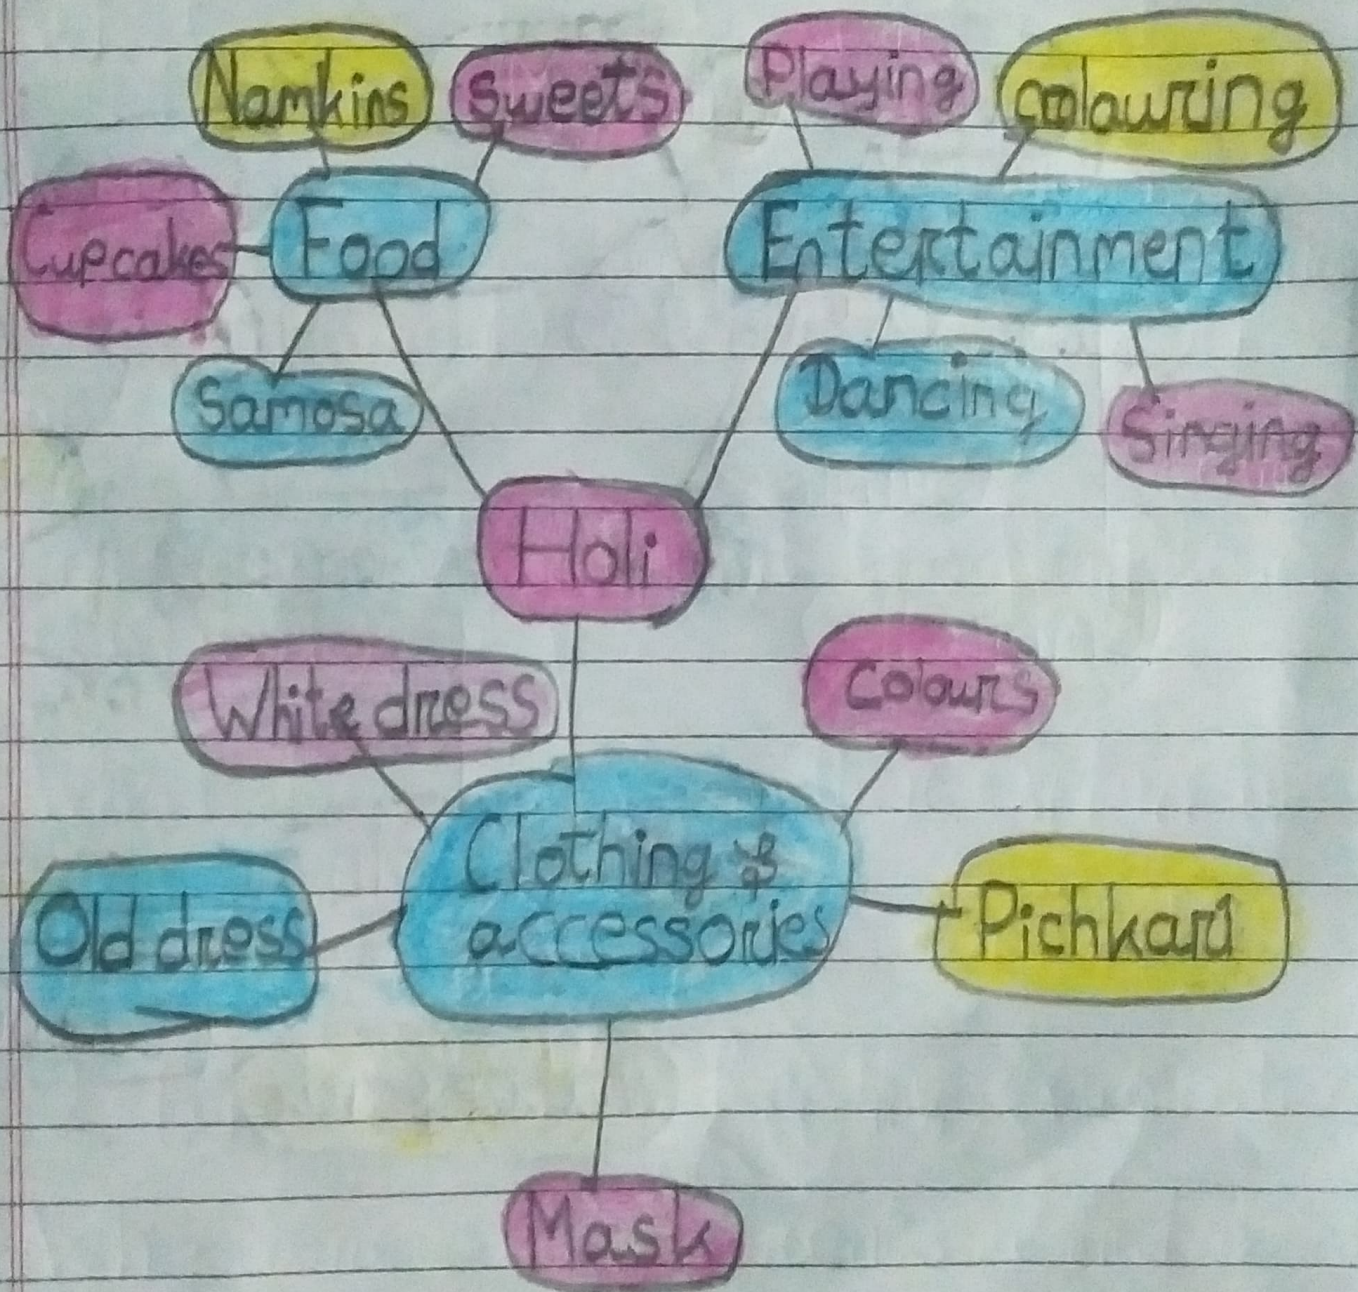 Namkins
Sweets
Playing
colouring
Cupcakes
Food
Entertainment
Samosa
Dancing
Singing
Holi
White dress
Colours
Clothing &
accessories
Old dress
Pichkari
Mask